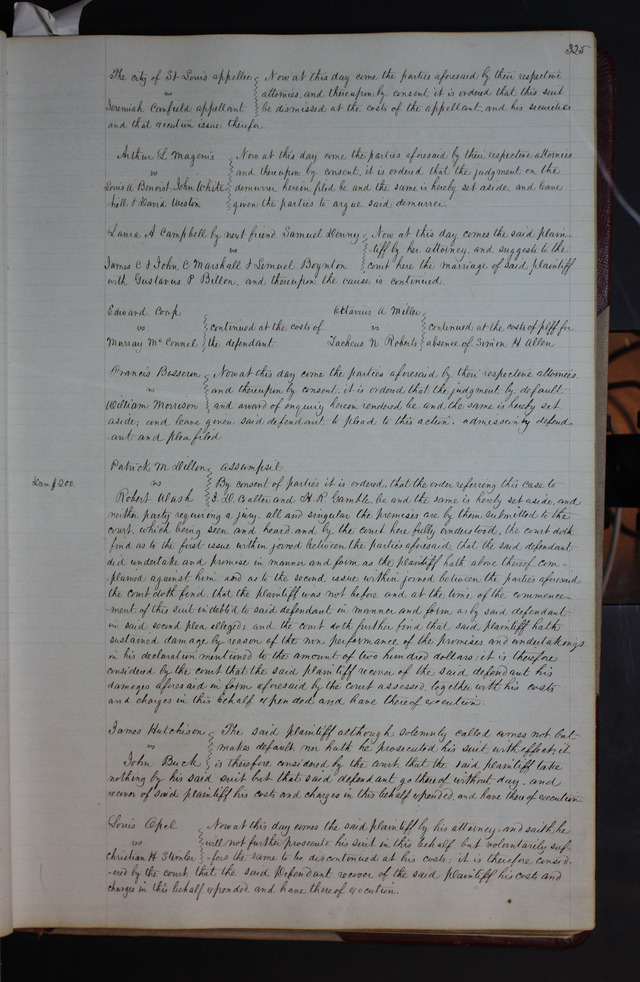 325
The city of St Louis appellee Now at this day come the parties aforesaid by their respective
vs attornies, and thereupon by consent it is ordered that this suit
Jeremiah Canfield appellant be dismissed at the costs of the appellant, and his securities
and that execution issue therefor
Arthur L Magenis Now at this day come the parties aforesaid by their respective attornies
vs and thereupon by consent, it is ordered that the judgment on the
Louis A Benoist John White demurrer herein filed be and the same is hereby set aside, and leave
hill & David Weston given the parties to argue said demurrer.
Laura A Campbell by next friend Samuel Denny Now at this day comes the said plain-
vs tiff by her attorney, and suggests to the
James C & John C Marshall & Lemuel Boynton court here the marriage of said plaintiff
with Gustavus P Billon, and thereupon the cause is continued.
Edward Coop Octavius A Miller
vs continued at the costs of vs continued at the costs of plff for
Murray McConnel the defendant Zacheus N Roberts absence of Simon H Allen
Francis Bosseron Now at this day come the parties aforesaid by their respective attornies
vs and thereupon by consent, it is ordered that the judgment by default
William Morrison and award of enquiry herein rendered be and the same is hereby set
aside, and leave given said defendant to plead to this action, by defend-
ant and plea filed
Patrick M Dillon assumpsit
Dam $200. vs By consent of parties it is ordered, that the order referring this case to
Robert Wash J. D. and H R Gamble, be and the same is hereby set aside, and
neither party requiring a jury, all and singular the premises are by them submitted to the
court, which being seen and heard, and by the court here fully understood, the court doth
find as to the first issue within joined between the parties aforesaid, that the said defendant
did undertake and promise in manner and form as the plaintiff hath above thereof com-
plained against him and as to the second issue, within joined between the parties aforesaid
the court doth find, that the plaintiff was not before and at the time of the commence-
ment of this suit indebted to said defendant in manner and form as by said defendant
in said second plea alleged; and the court doth further find that said plaintiff hath
sustained damage by reason of the non performance of the promises and undertakings
in his declaration mentioned to the amount of two hundred dollars; it is therefore
considered by the court that the said plaintiff recover of the said defendant his
damages aforesaid in form aforesaid by the court assessed, together with his costs
and charges in this behalf expended and have thereof execution.
James Hutchison The said plaintiff although solemnly called comes not but
vs makes default, nor hath he prosecuted his suit with effect, it
John Buck is therefore considered by the court, that the said plaintiff take
nothing by his said suit but that said defendant go thereof without day, and
recover of said plaintiff his costs and charges in this behalf expended, and have thereof execution
Louis Apel Now at this day comes the said plaintiff by his attorney, and saith he
vs will not further prosecute his suit in this behalf but voluntarily suf-
christian H Stemler -fers the same to be discontinued at his costs; it is therefore consid-
-ered by the court, that the said Defendant recover of the said plaintiff his costs and
charges in this behalf expended and have thereof execution.